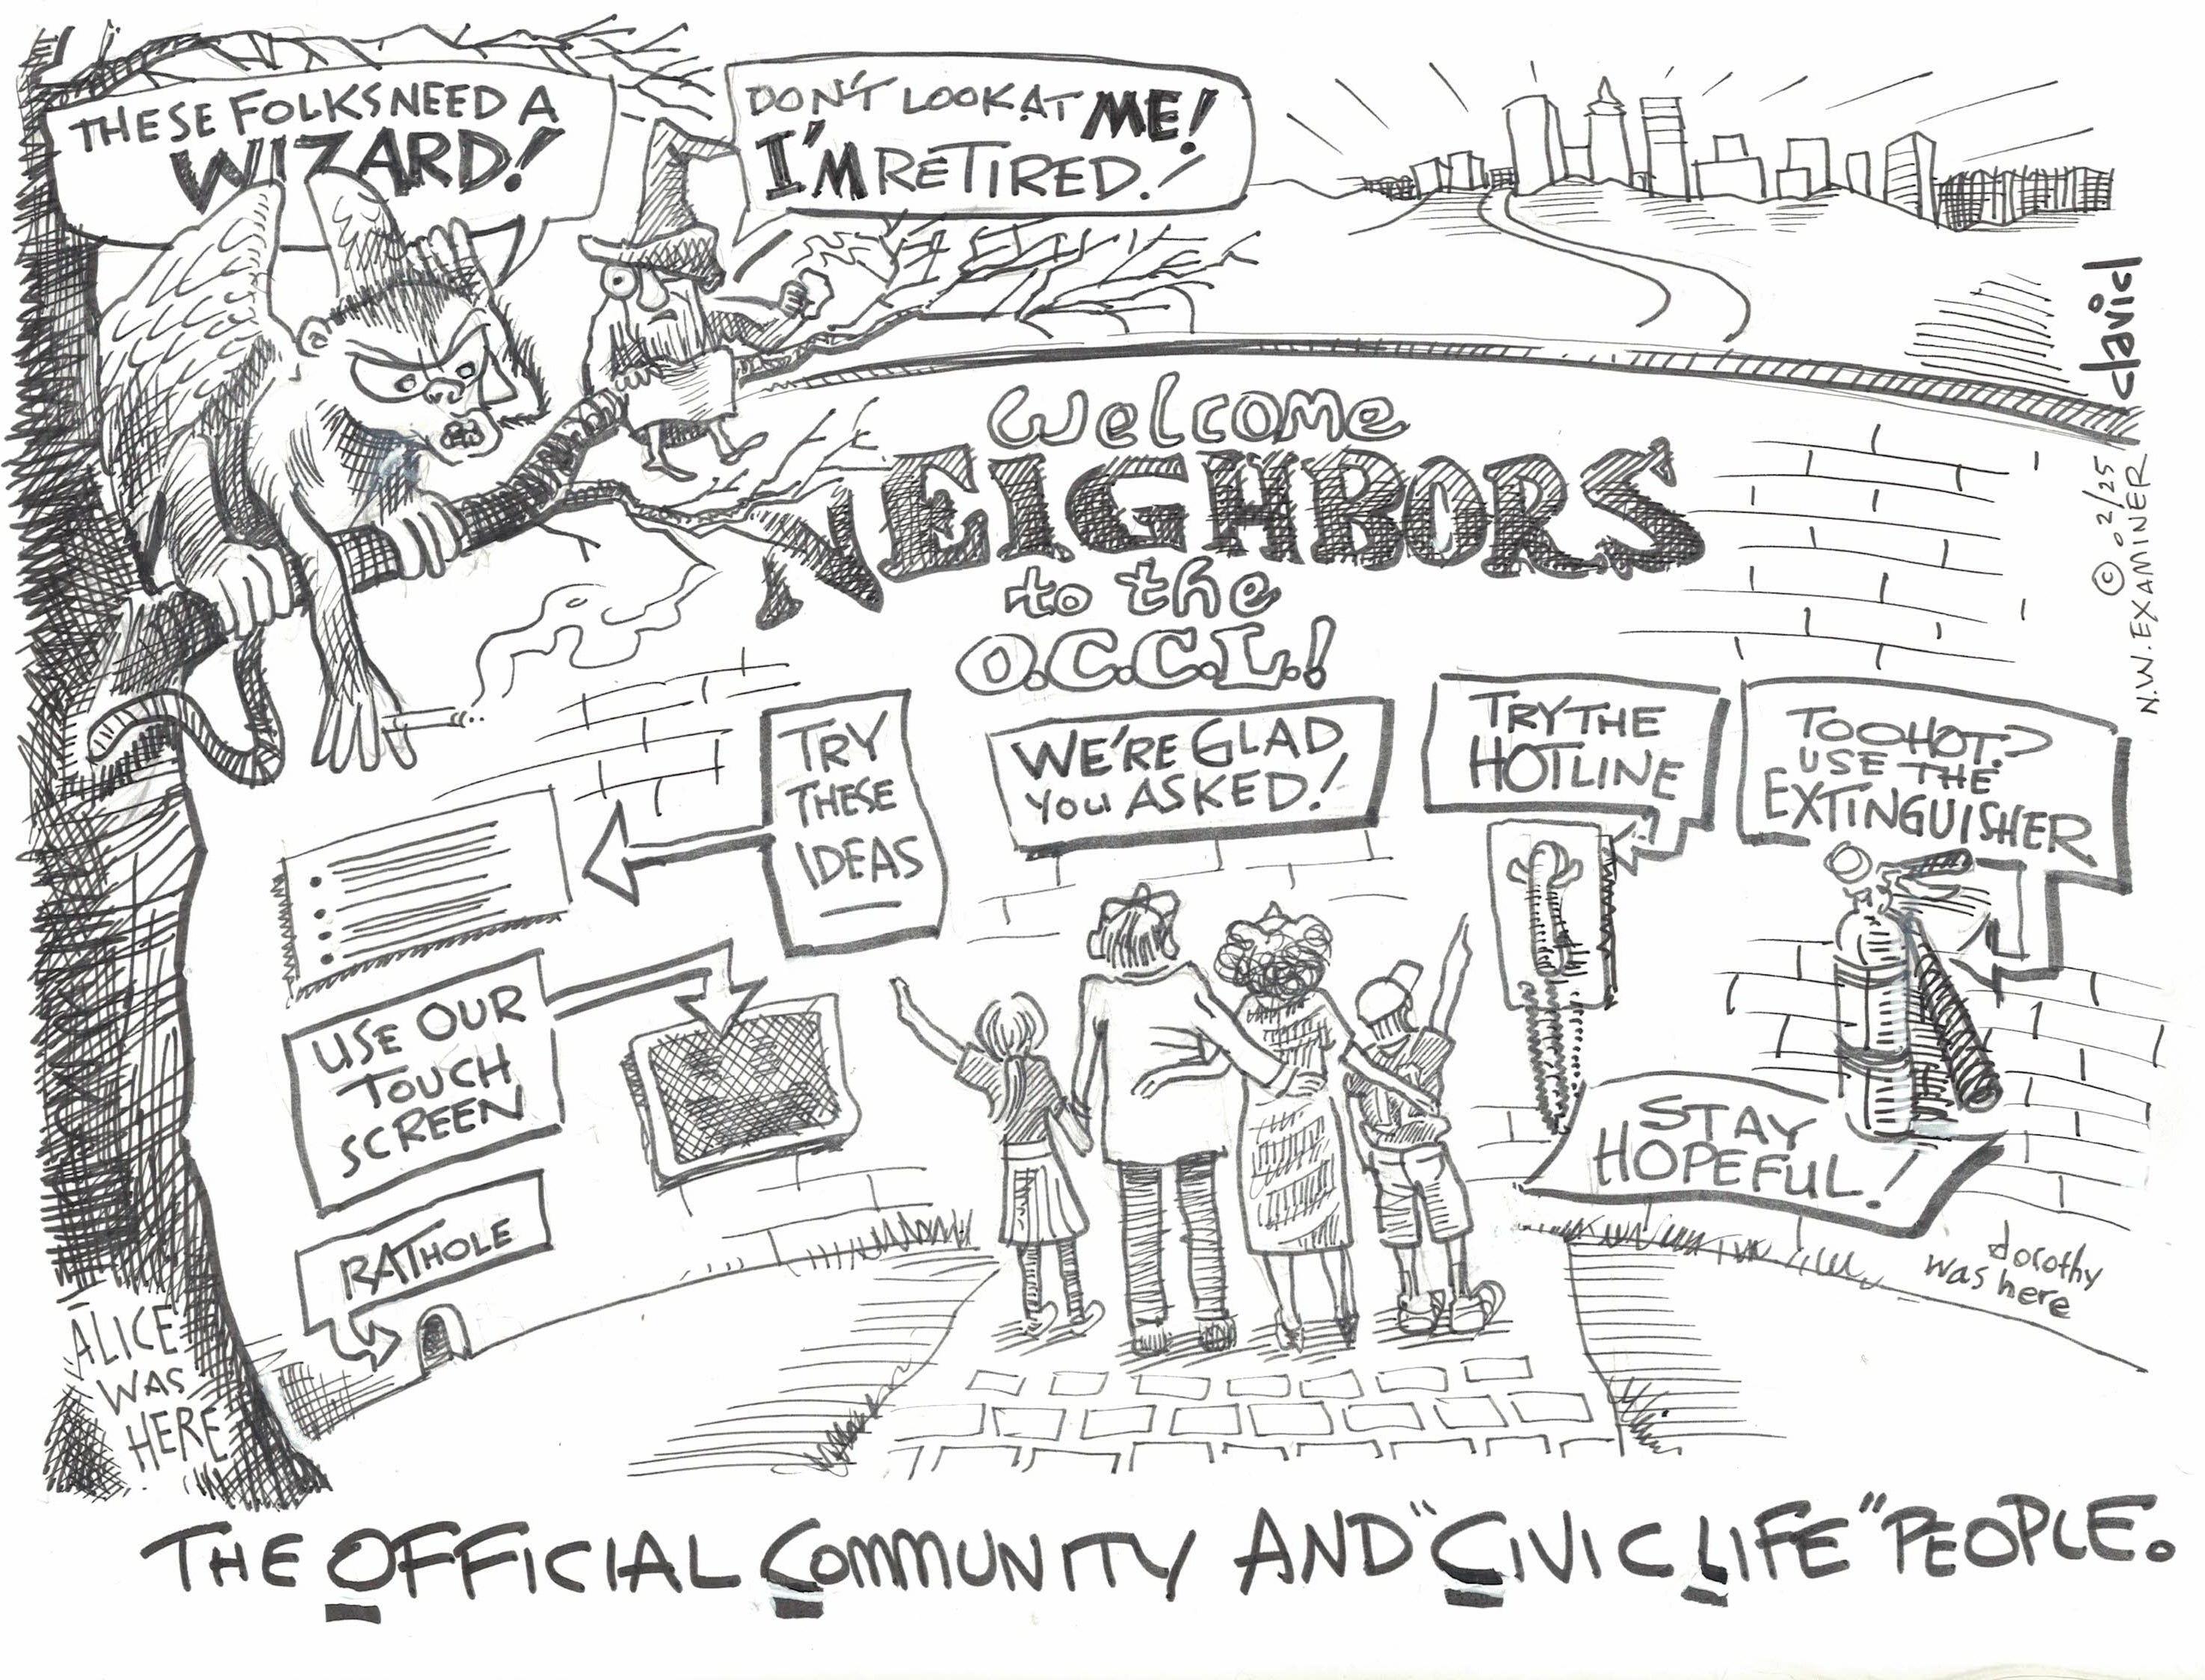 THESE FOLKS NEED A
WIZARD!
DON'T LOOK AT ME!
I'M RETIRED!
david
© 02/25
N.W. EXAMINER
Welcome
NEIGHBORS
to the
O.C.C.L.!
TRY
THESE
IDEAS
WE'RE GLAD
YOU ASKED!
TRY THE
HOTLINE
TOO HOT?
USE THE
EXTINGUISHER
USE OUR
TOUCH
SCREEN
RATHOLE
STAY
HOPEFUL!
ALICE
WAS
HERE
dorothy
was here
THE OFFICIAL COMMUNITY AND "CIVIC LIFE" PEOPLE.